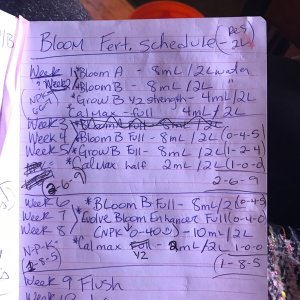 Bloom Fert. schedule (- per 2L
Week 1 * Bloom A - 8mL / 2L water
* Week 2 * Bloom B - 8mL / 2L "
NPK * Grow B 1/2 strength - 4mL / 2L
* Cal max - full - 4mL / 2L
Week 3
Week 4 * Bloom B Full - 8mL / 2L (0-4-5)
Week 5 * Grow B Full - 8mL / 2L (1-2-4)
* Cal max half 2mL / 2L (1-0-0)
2-6-9 2-6-9
Week 6 * Bloom B Full - 8mL / 2L (0-4-5)
Week 7 * Evolve Bloom Enhancer Full (0-4-0)
Week 8 (NPK 0-40-0) - 10mL / 2L
N-P-K * Cal max 1/2 - 2mL / 2L (1-0-0)
1-8-5 1-8-5
Week 9 Flush
Week 10